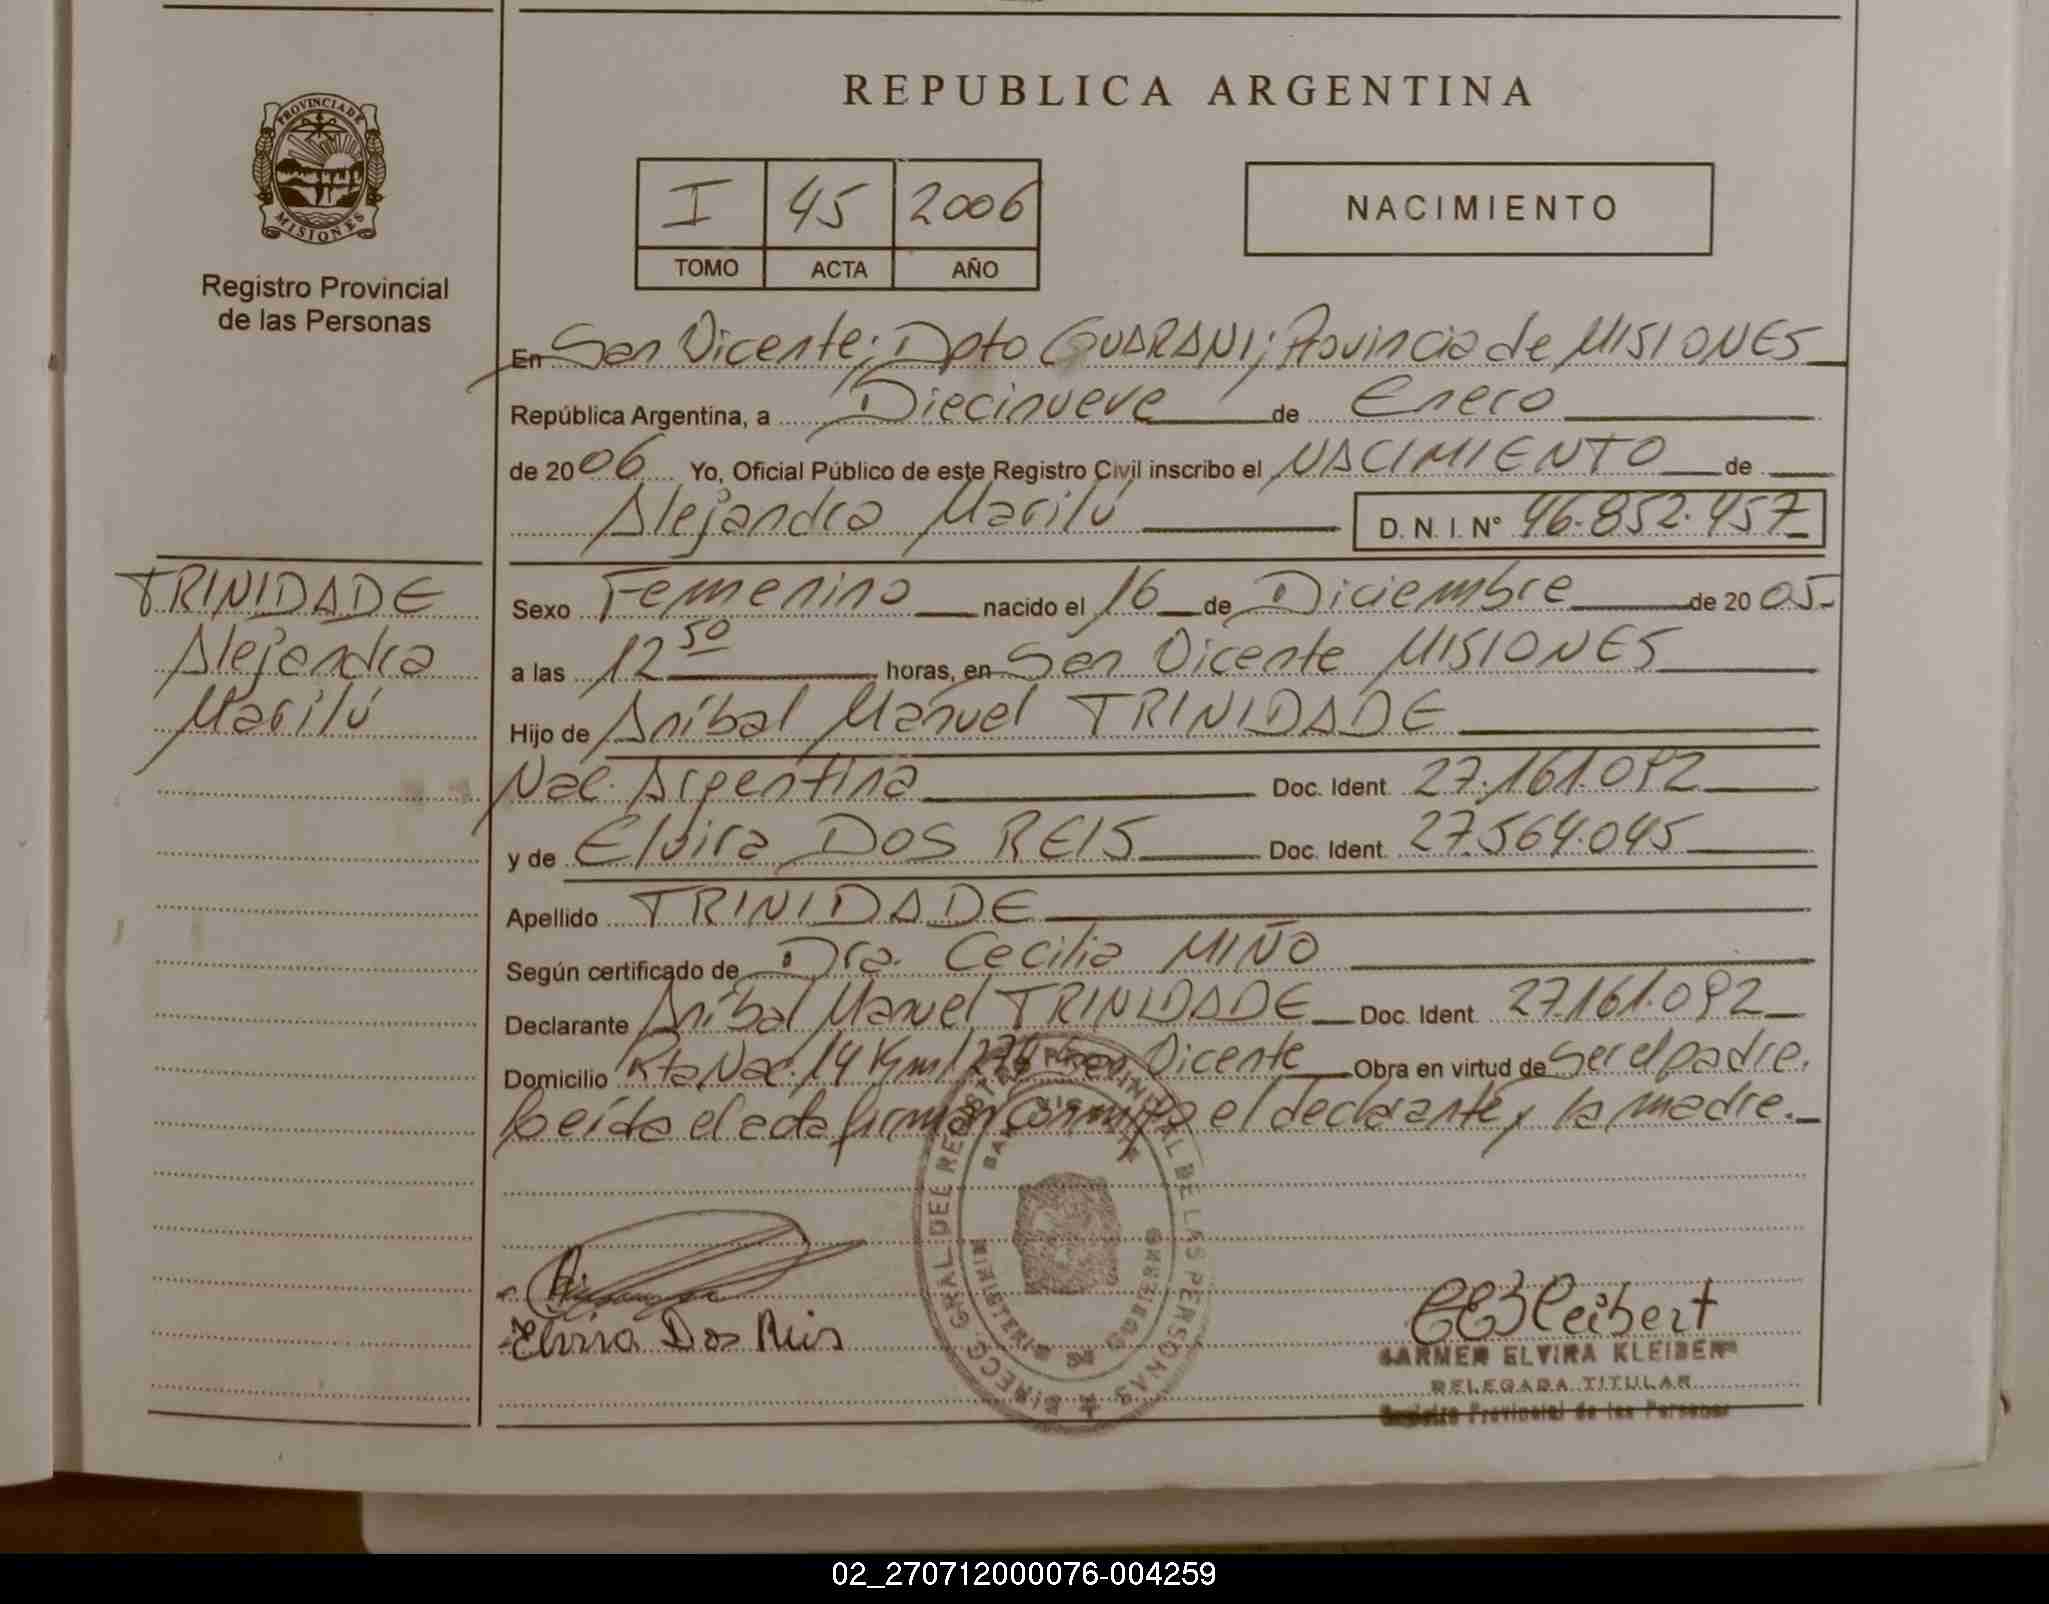 PROVINCIA DE
MISIONES
Registro Provincial
de las Personas
TRINIDADE
Alejandra
Marilú
REPUBLICA ARGENTINA
I 45 2006
TOMO ACTA AÑO
NACIMIENTO
En San Vicente; Dpto GUARANI; Provincia de MISIONES
República Argentina, a Diecinueve de Enero
de 2006 Yo, Oficial Público de este Registro Civil inscribo el NACIMIENTO de
Alejandra Marilú D. N. I. N° 46.852.457
Sexo Femenino nacido el 16 de Diciembre de 2005.-
a las 12 50 horas, en San Vicente MISIONES
Hijo de Aníbal Manuel TRINIDADE
Nac. Argentina Doc. Ident. 27.161.092
y de Elvira DOS REIS Doc. Ident. 27.564.045
Apellido TRINIDADE
Según certificado de Dra. Cecilia MIÑO
Declarante Aníbal Manuel TRINIDADE Doc. Ident. 27.161.092
Domicilio Rta Nac. 14 Km 1276 San Vicente Obra en virtud de Ser el padre.
Leída el acta firman conmigo el declarante y la madre.-
DIRECC. GRAL DEL REGISTRO PROVINCIAL DE LAS PERSONAS
MINISTERIO DE GOBIERNO
Elvira Dos Reis
CEKleibert
CARMEN ELVIRA KLEIBERT
DELEGADA TITULAR
Registro Provincial de las Personas
02_270712000076-004259